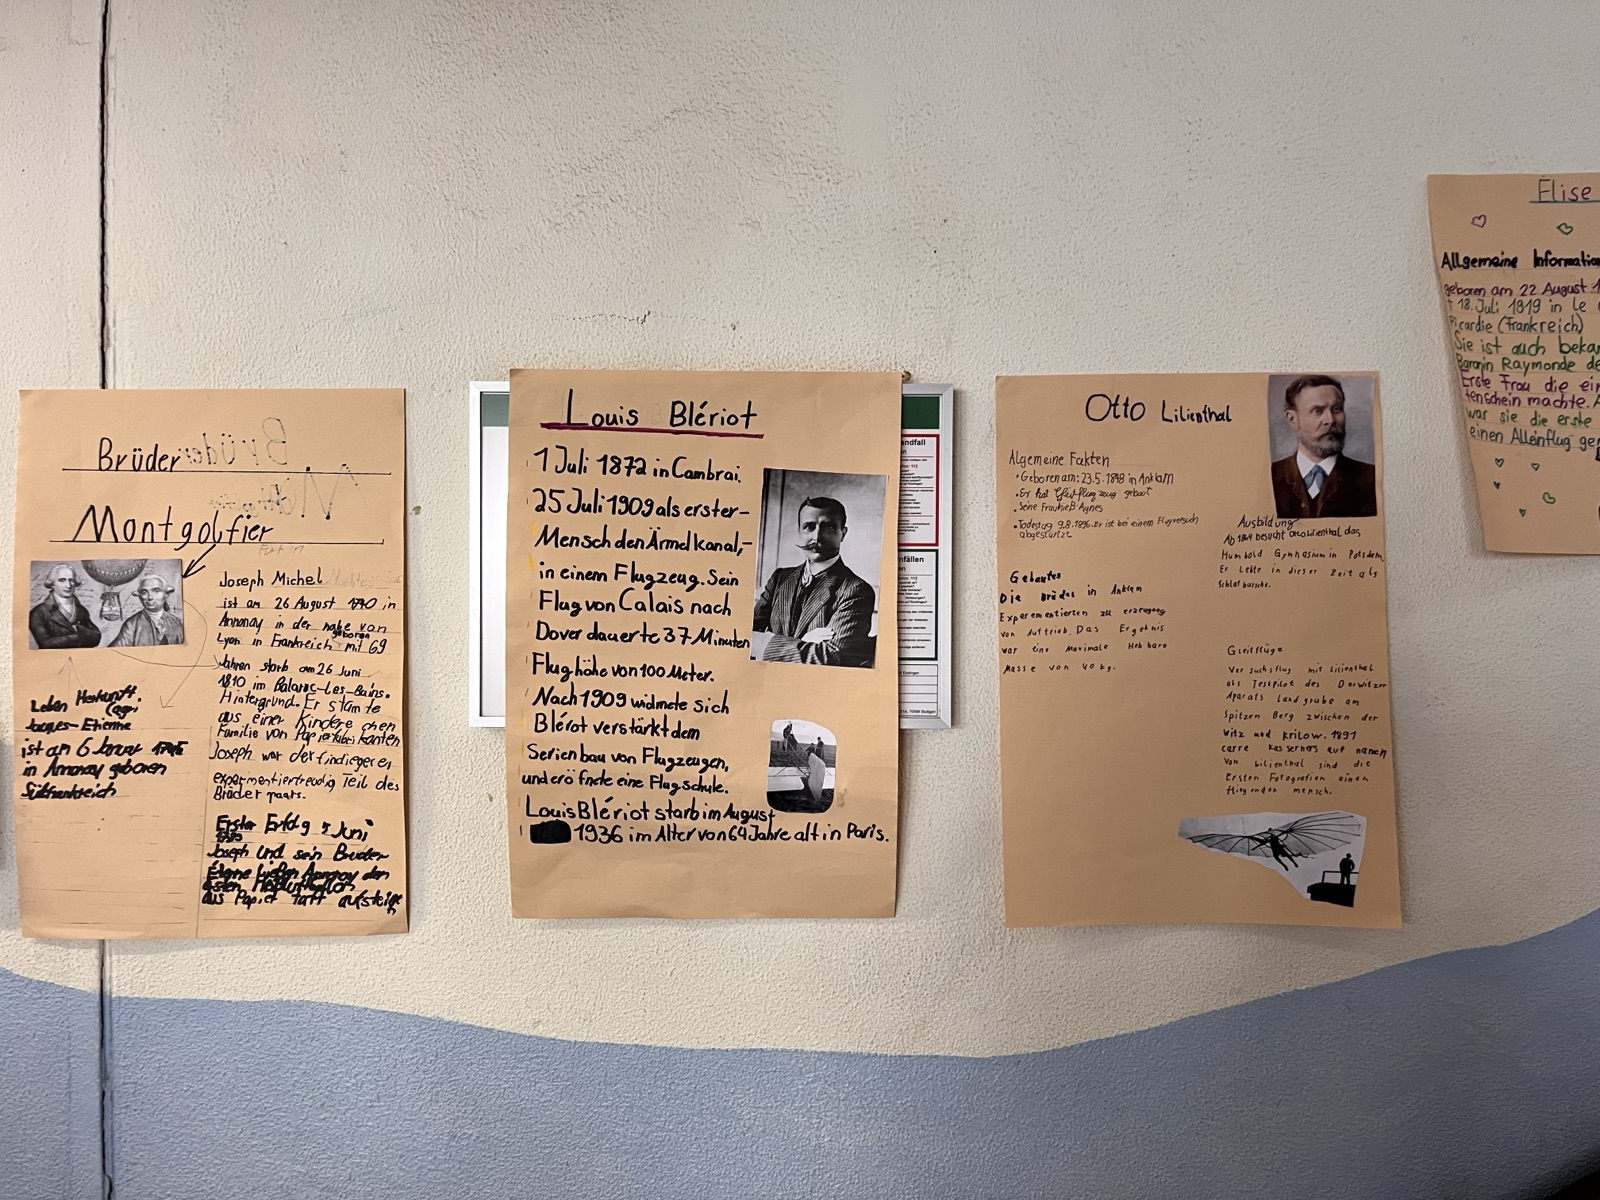 Brüder
Montgolfier
Joseph Michel
ist am 26 August 1740 in
Annonay in der nähe von
Lyon in Frankreich geboren mit 69
Jahren starb am 26 Juni
1810 im Balaruc-Les-Bains.
Hintergrund. Er stamte
aus einer Kindere chen
Familie von Papierfabrikanten
Joseph war der findigeren
experimentierfreudig Teil des
Brüder paars.
Erster Erfolg 5 Juni
Joseph und sein Bruder
Annonay den
aus Papier
Leben Herkunft.
Jacques-Etienne
ist am 6 Januar 1745
in Annonay geboren
Südfrankreich
Louis Blériot
1 Juli 1872 in Cambrai.
25 Juli 1909 als erster-
Mensch den Ärmelkanal,-
in einem Flugzeug. Sein
Flug von Calais nach
Dover dauerte 37 Minuten
Flughöhe von 100 Meter.
Nach 1909 widmete sich
Blérot verstärkt dem
Serienbau von Flugzeugen,
und erö fnete eine Flugschule.
Louis Blériot starb im August
1936 im Alter von 64 Jahre alt in Paris.
Otto Lilienthal
Algemeine Fakten
• Geboren am: 23.5.1848 in Anklam
• Er hat gebaut
• Seine Frau hieß Agnes
• Todestag 9.8.1896. Er ist bei einem Flugversuch
abgestürtzt
Ausbildung
Ab 1864 besucht Otto Lilienthal das
Humbold Gymnasium in Potsdam,
Er Lebte in dieser Zeit als
Schlafbursche.
Gebautes
Die Brüder in Anklam
Experementierten zu erzeugung
von Auftrieb. Das Ergebnis
war eine Maximale Hebbare
Masse von 40 kg.
Gleitflüge
Versuchsflug mit Lilienthal
als Testpilot des Derwitzer
Aparats Landgrube am
Spitzen Berg zwischen der
witz und Krilow. 1891
carre kasserners auf namen
von Lilienthal sind die
Ersten Fotografien einen
fliegenden mensch.
Elise
Allgemeine Information
geboren am 22 August 1
† 18. Juli 1919 in Le
Picardie (Frankreich)
Sie ist auch beka
Baronin Raymonde de
Erste Frau die ein
tenschein machte. A
war sie die erste
einen Alleinflug ge